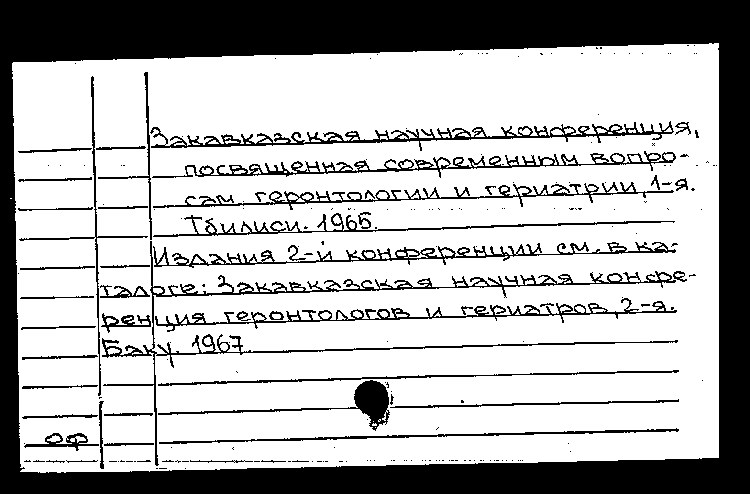 Закавказская научная конференция,
посвященная современным вопро-
сам геронтологии и гериатрии, 1-я.
Тбилиси. 1965.
Издания 2-й конференции см. в ка-
талоге: Закавказская научная конфе-
ренция геронтологов и гериатров, 2-я.
Баку. 1967.
оф